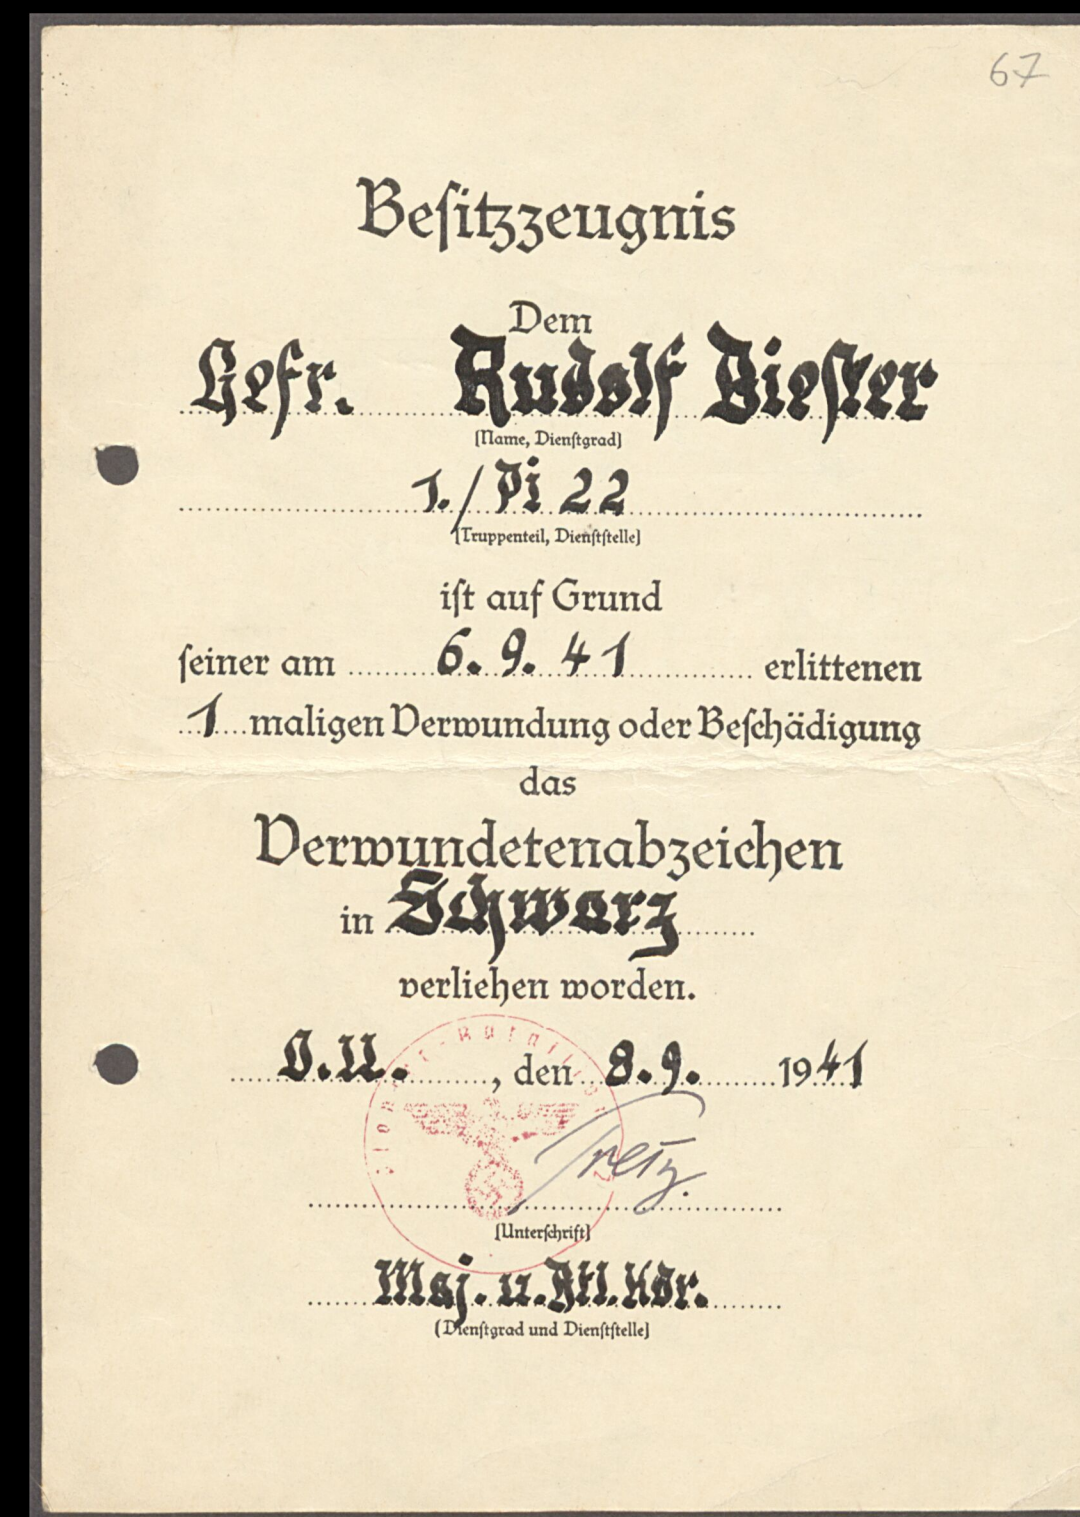 67
Beſitzzeugnis
Dem
Gefr. Rudolf Bieſter
(Name, Dienſtgrad)
1./Pi 22
(Truppenteil, Dienſtſtelle)
iſt auf Grund
ſeiner am 6.9.41 erlittenen
1 maligen Verwundung oder Beſchädigung
das
Verwundetenabzeichen
in Schwarz
verliehen worden.
O.U., den 8.9. 1941
(Unterſchrift)
Maj. u. Btl. Kdr.
(Dienſtgrad und Dienſtſtelle)